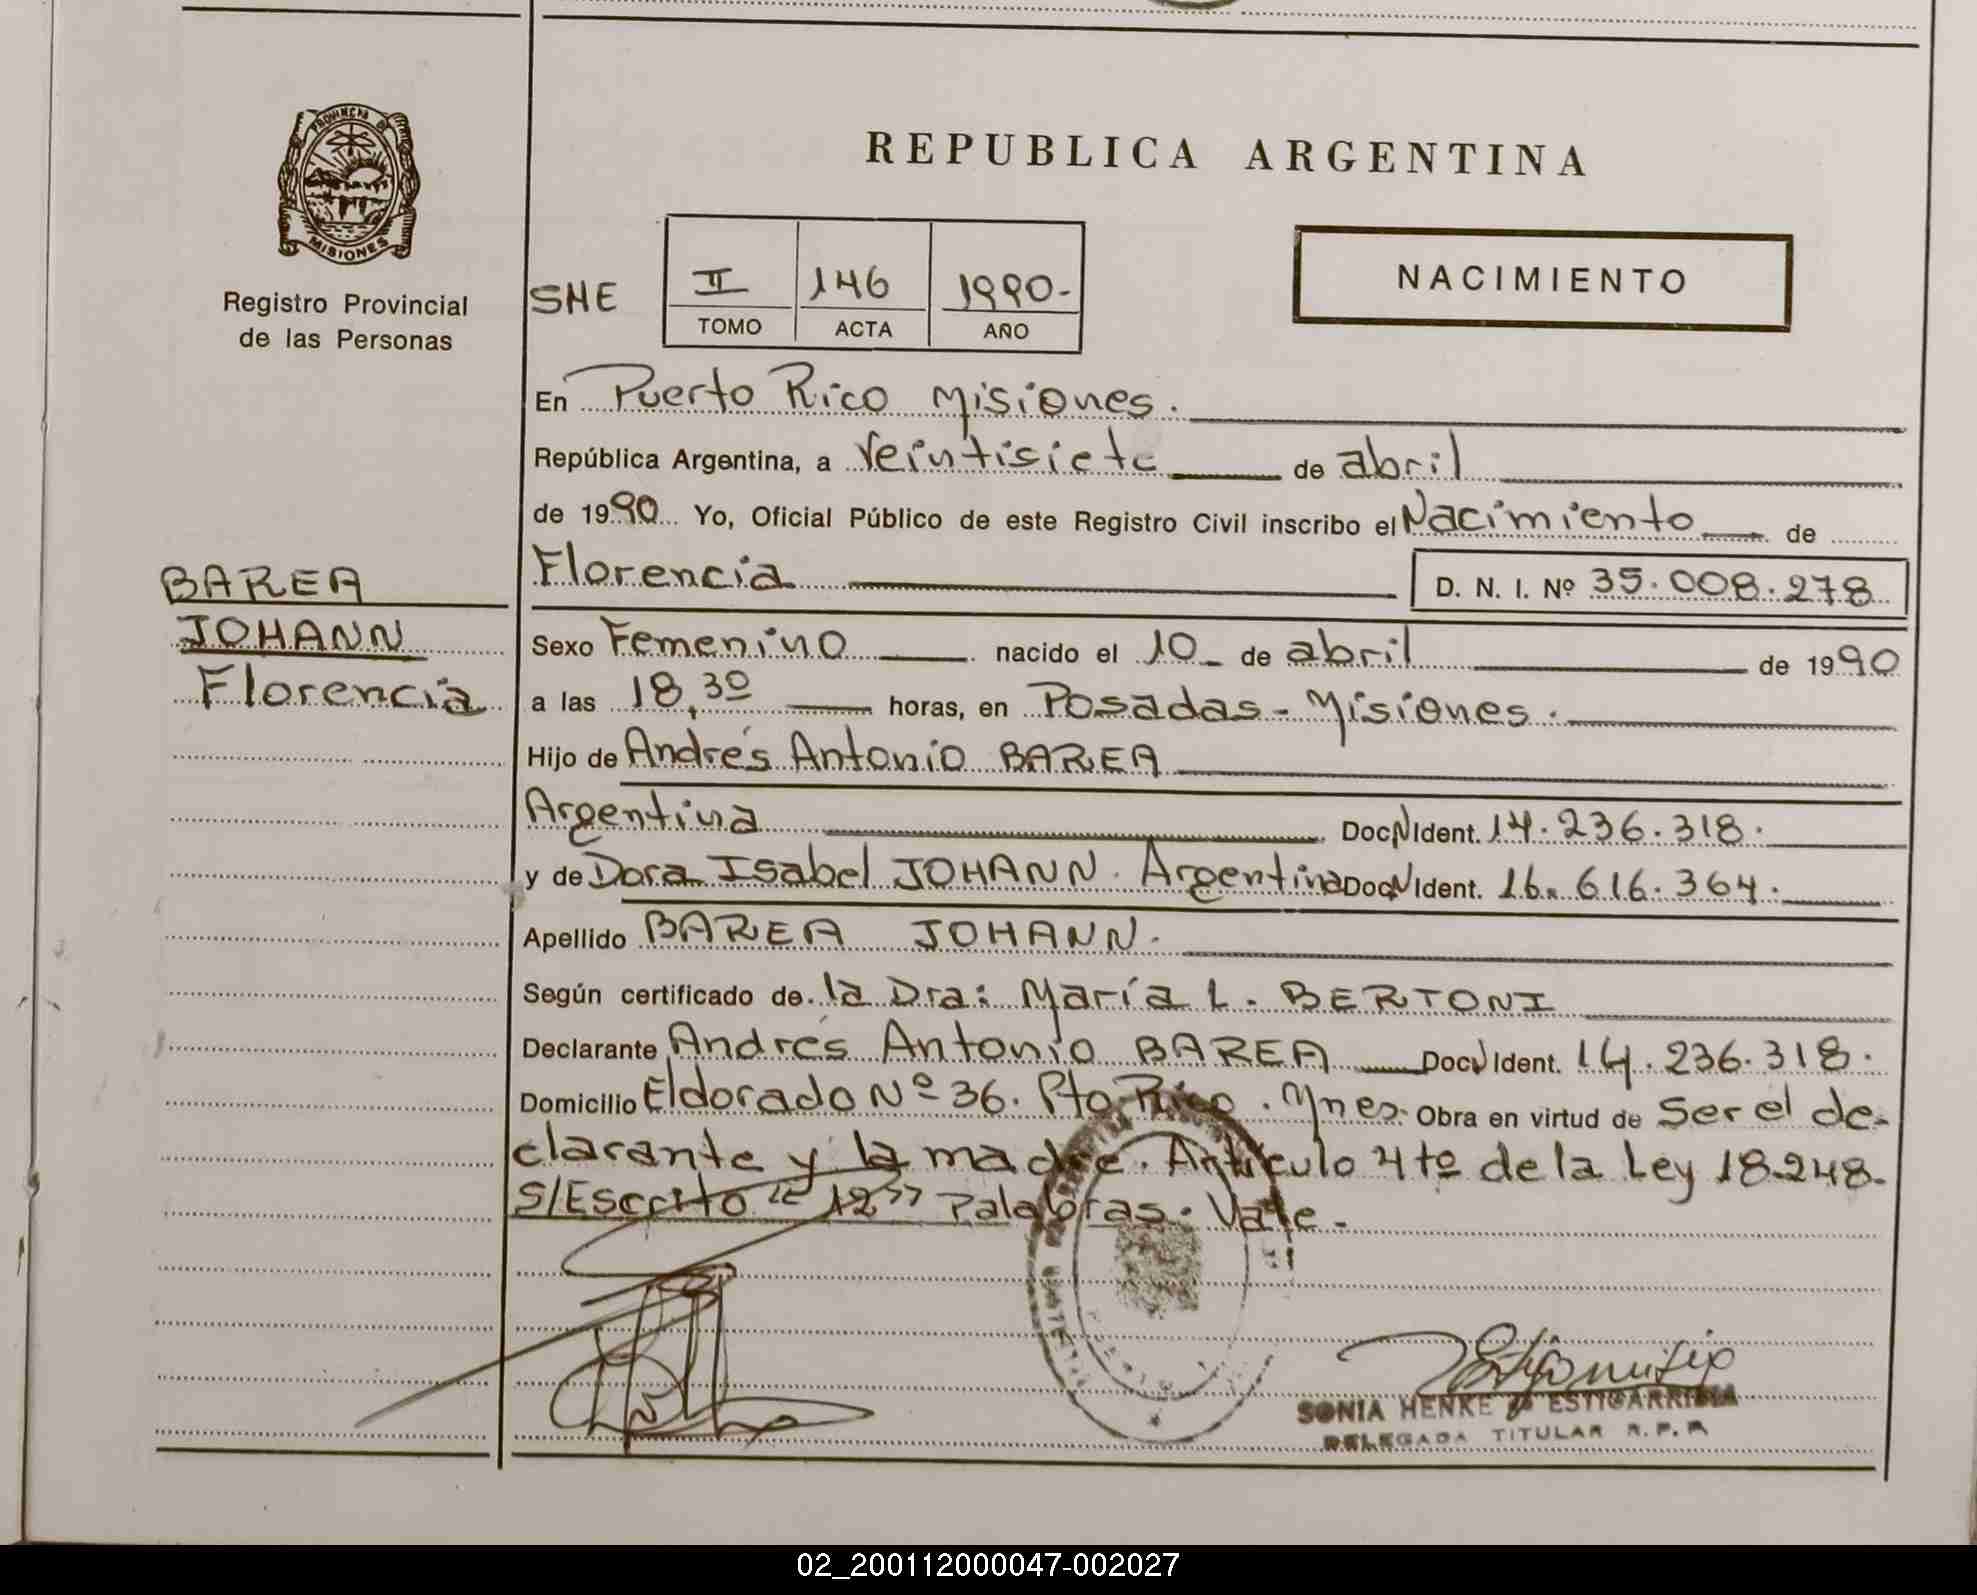 REPUBLICA ARGENTINA
PROVINCIA DE
MISIONES
Registro Provincial
de las Personas
SHE
II 146 1990-
TOMO ACTA AÑO
NACIMIENTO
En Puerto Rico Misiones.
República Argentina, a Veintisiete de abril
de 1990 Yo, Oficial Público de este Registro Civil inscribo el Nacimiento de
Florencia
D. N. I. Nº 35.008.278
BAREA
JOHANN
Florencia
Sexo Femenino nacido el 10 de abril de 1990
a las 18,30 horas, en Posadas - Misiones.
Hijo de Andrés Antonio BAREA
Argentina Doc N Ident. 14.236.318.
y de Dora Isabel JOHANN. Argentina Doc N Ident. 16.616.364.
Apellido BAREA JOHANN.
Según certificado de la Dra: María L. BERTONI
Declarante Andrés Antonio BAREA Doc N Ident. 14.236.318.
Domicilio Eldorado Nº 36. Pto Rico. Mnes. Obra en virtud de Ser el de-
clarante y la madre. Artículo 4to de la Ley 18.248.
S/Escrito "12" Palabras. Vale.
SONIA HENKE de ESTIGARRIBIA
DELEGADA TITULAR R. P. P.
02_200112000047-002027